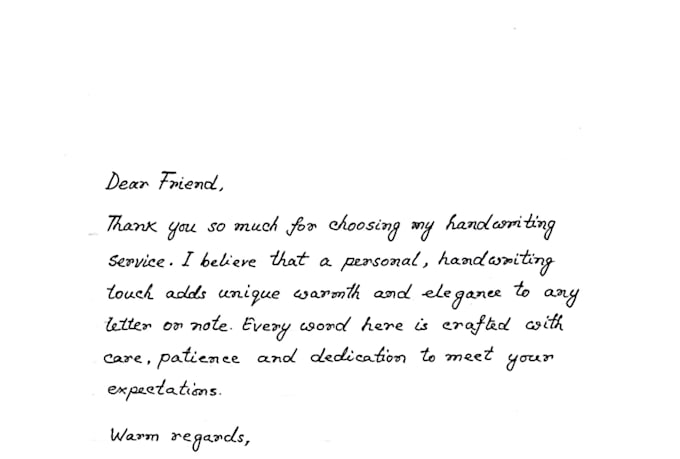 Dear Friend,
Thank you so much for choosing my handwriting
service. I believe that a personal, handwriting
touch adds unique warmth and elegance to any
letter or note. Every word here is crafted with
care, patience and dedication to meet your
expectations.
Warm regards,